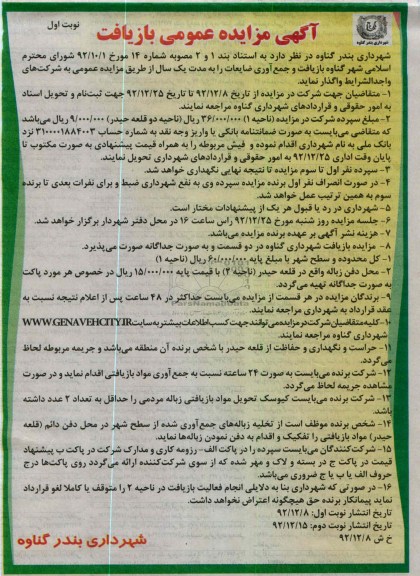 نوبت اول
آگهی مزایده عمومی بازیافت
شهرداری بندر گناوه
شهرداری بندر گناوه در نظر دارد به استناد بند ۱ و ۲ مصوبه شماره ۱۴ مورخ ۹۲/۱۰/۱ شورای محترم
اسلامی شهر گناوه بازیافت و جمع‌آوری ضایعات را به مدت یک سال از طریق مزایده عمومی به شرکت‌های
واجدالشرایط واگذار نماید.
۱- متقاضیان جهت شرکت در مزایده از تاریخ ۹۲/۱۲/۸ تا تاریخ ۹۲/۱۲/۲۵ جهت ثبت‌نام و تحویل اسناد
به امور حقوقی و قراردادهای شهرداری گناوه مراجعه نمایند.
۲- مبلغ سپرده شرکت در مزایده (ناحیه ۱) ۳۶/۰۰۰/۰۰۰ ریال (ناحیه دو قلعه حیدر) ۹/۰۰۰/۰۰۰ ریال می‌باشد
که متقاضی می‌بایست به صورت ضمانتنامه بانکی یا واریز وجه نقد به شماره حساب ۳۱۰۰۰۰۱۸۸۴۰۰۳ نزد
بانک ملی به نام شهرداری اقدام نموده و فیش مربوطه را به همراه قیمت پیشنهادی به صورت مکتوب تا
پایان وقت اداری ۹۲/۱۲/۲۵ به امور حقوقی و قراردادهای شهرداری تحویل نمایند.
۳- سپرده نفر اول تا سوم مزایده تا نتیجه نهایی نگهداری خواهد شد.
۴- در صورت انصراف نفر اول برنده مزایده سپرده وی به نفع شهرداری ضبط و برای نفرات بعدی تا برنده
سوم به همین ترتیب عمل خواهد شد.
۵- شهرداری در رد یا قبول هر یک از پیشنهادات مختار است.
۶- جلسه مزایده روز شنبه مورخ ۹۲/۱۲/۲۵ راس ساعت ۱۶ در محل دفتر شهردار برگزار خواهد شد.
۷- هزینه نشر آگهی بر عهده برنده مزایده می‌باشد.
۸- مزایده بازیافت شهرداری گناوه در دو قسمت و به صورت جداگانه صورت می‌پذیرد.
۱- کل محدوده و سطح شهر با مبلغ پایه ۶۰/۰۰۰/۰۰۰ ریال (ناحیه ۱)
۲- محل دفن زباله واقع در قلعه حیدر (ناحیه ۲) با قیمت پایه ۱۵/۰۰۰/۰۰۰ ریال در خصوص هر مورد پاکت
به صورت جداگانه تهیه می‌گردد.
۹- برندگان مزایده در هر قسمت از مزایده می‌بایست حداکثر در ۴۸ ساعت پس از اعلام نتیجه نسبت به
عقد قرارداد به شهرداری مراجعه نمایند.
۱۰- کلیه متقاضیان شرکت در مزایده می‌توانند جهت کسب اطلاعات بیشتر به سایت WWW.GENAVEHCITY.IR
شهرداری گناوه مراجعه نمایند.
۱۱- حراست و نگهداری و حفاظت از قلعه حیدر با شخص برنده آن منطقه می‌باشد و جریمه مربوطه لحاظ
می‌گردد.
۱۲- شرکت برنده می‌بایست به صورت ۲۴ ساعته نسبت به جمع‌آوری مواد بازیافتی اقدام نماید و در صورت
مشاهده جریمه لحاظ می‌گردد.
۱۳- شرکت برنده می‌بایست کیوسک تحویل مواد بازیافتی زباله مردمی را حداقل به تعداد ۲ عدد داشته
باشد.
۱۴- شخص برنده موظف است از تخلیه زباله‌های جمع‌آوری شده از سطح شهر در محل دفن دائم (قلعه
حیدر) مواد بازیافتی را تفکیک و اقدام به دفن نمودن زباله‌ها نماید.
۱۵- شرکت‌کنندگان می‌بایست سپرده را در پاکت الف- رزومه کاری و مدارک شرکت در پاکت ب پیشنهاد
قیمت در پاکت ج در بسته و لاک و مهر شده که از سوی شرکت‌کننده ارائه می‌گردد روی پاکت‌ها درج
حروف الف یا ب یا ج ضروری می‌باشد.
۱۶- در صورتی که شهرداری بنا به دلایلی انجام فعالیت بازیافت در ناحیه ۲ را متوقف یا کاملا لغو قرارداد
نماید پیمانکار برنده حق هیچگونه اعتراض نخواهد داشت.
تاریخ انتشار نوبت اول: ۹۲/۱۲/۸
تاریخ انتشار نوبت دوم: ۹۲/۱۲/۱۵
خ ش ۹۲/۱۲/۸
شهرداری بندر گناوه